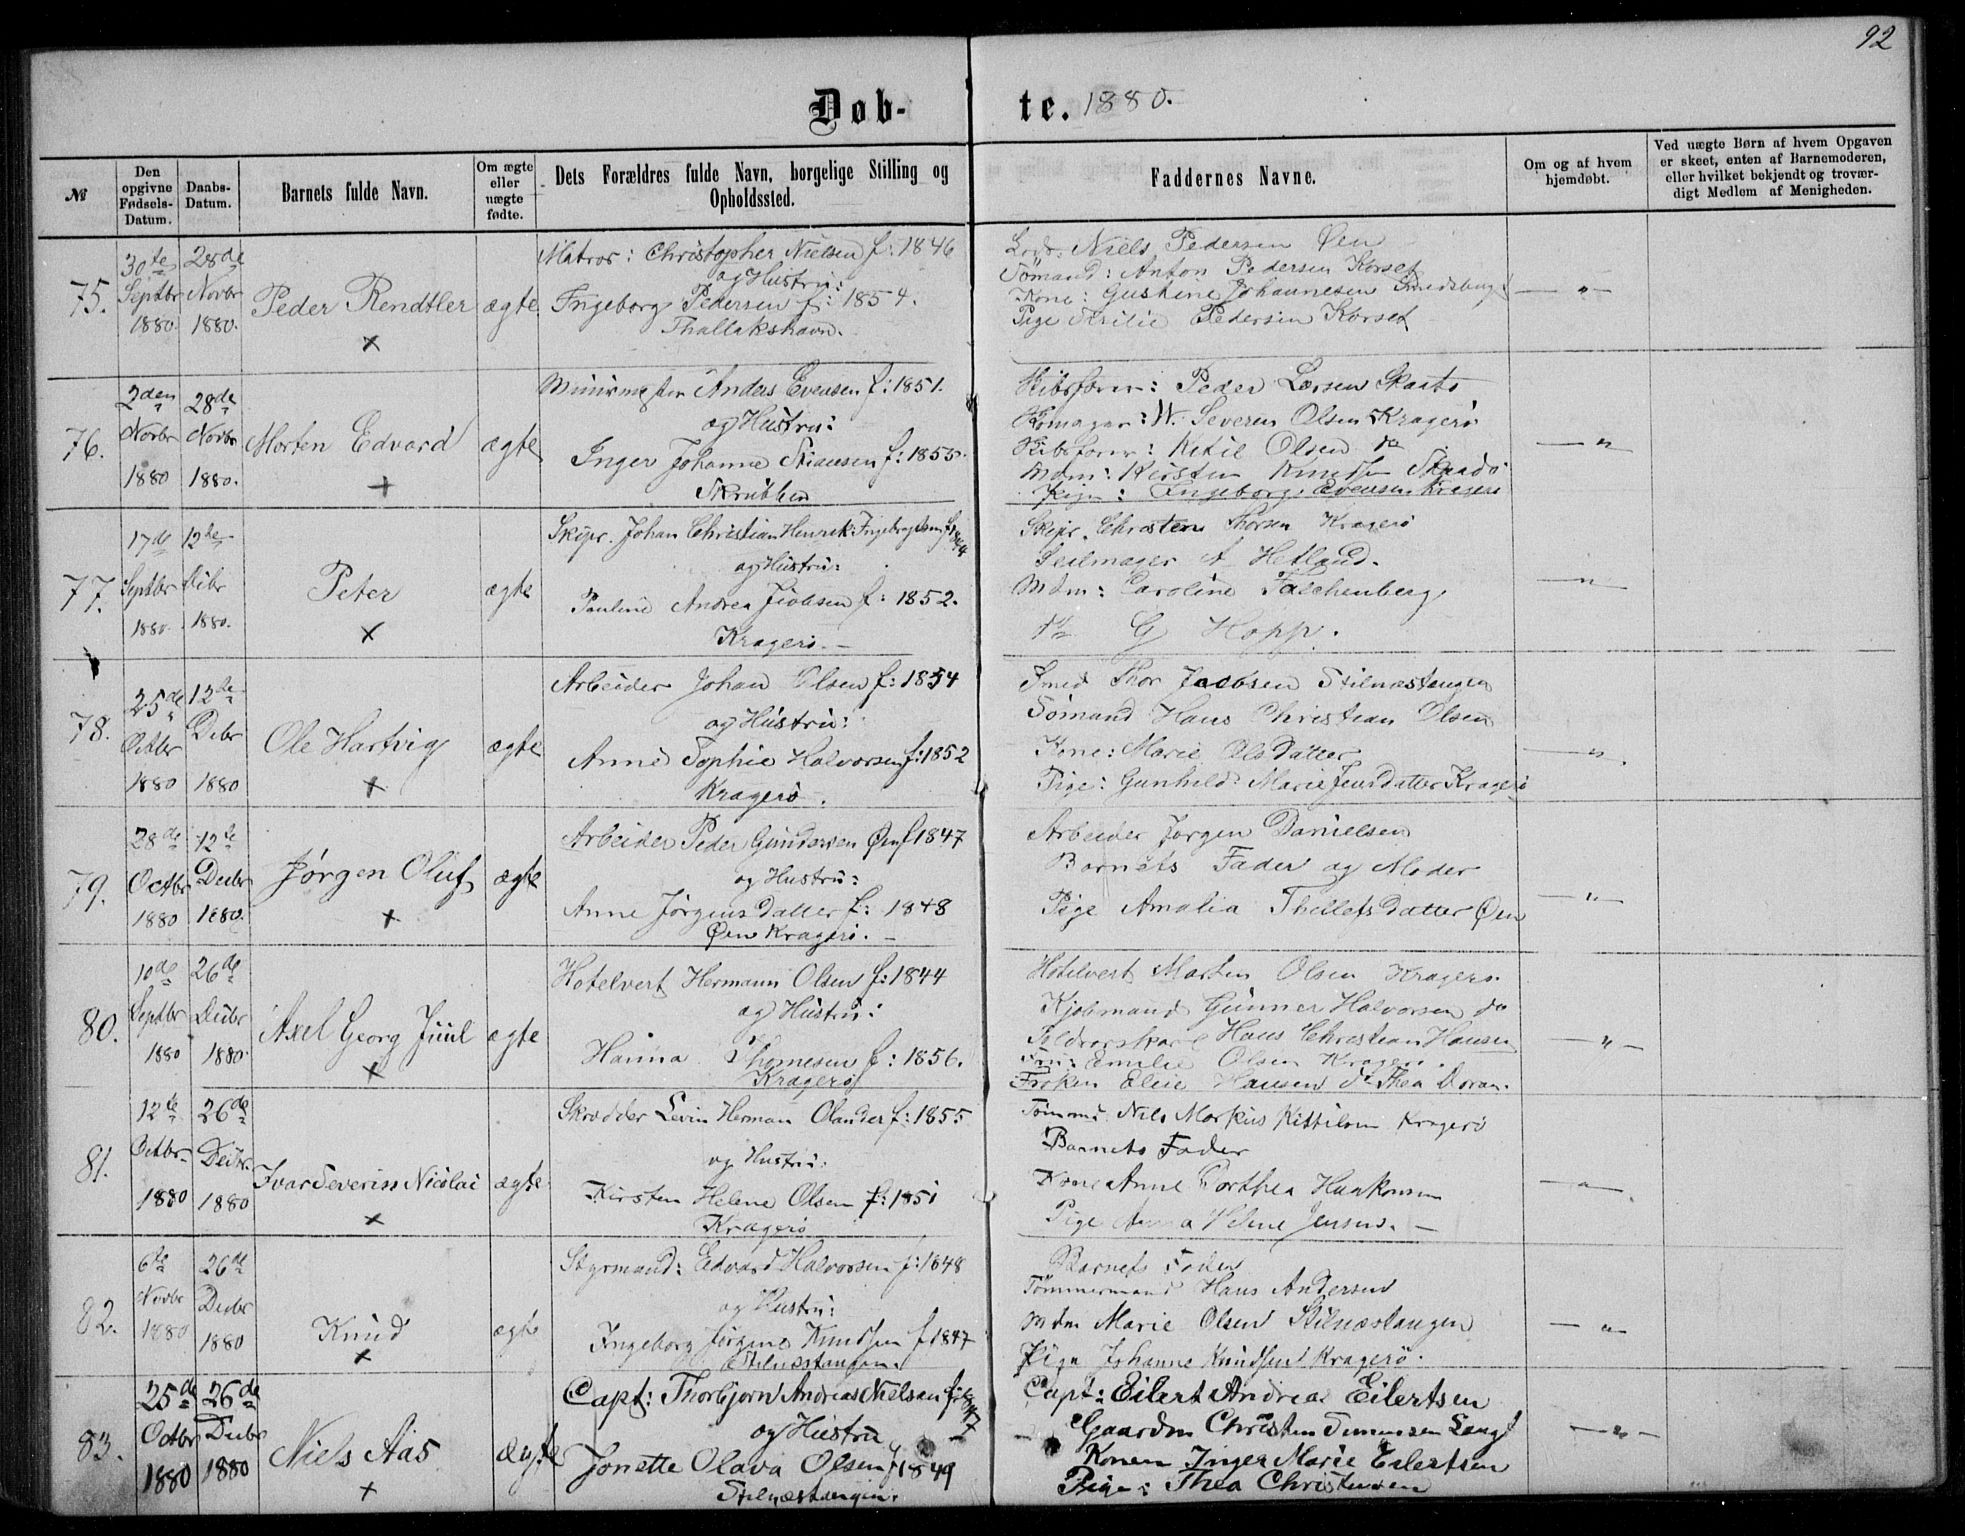 92
Døb- te. 1880.
№
Den opgivne Fødsels-Datum.
Daabs-Datum.
Barnets fulde Navn.
Om ægte eller uægte fødte.
Dets Forældres fulde Navn, borgelige Stilling og Opholdssted.
Faddernes Navne.
Om og af hvem hjemdøbt.
Ved uægte Børn af hvem Opgaven er skeet, enten af Barnemoderen, eller hvilket bekjendt og troværdigt Medlem af Menigheden.
75.
30te Septbr 1880
28de Novbr 1880.
Peder Rendtler
×
ægte
Matros: Christopher Nielsen f: 1846
og Hustru:
Ingeborg Pedersen f: 1854.
Thallakshavn.
Niels Pedersen Øen
Sømand: Anton Pedersen Korset
Kone: Gustine Johannesen
Pige Pedersen Korset
— " —
76.
2den Novbr 1880
28de Novbr 1880.
Morten Edvard
+
ægte
Anders Evensen f: 1851.
og Hustru:
Inger Johanne Stiansen f: 1855.
Skrubben
Skibsfører: Peder Larsen
W. Severen Olsen Kragerø
Skibsfører: Ketil Olsen do
Mdm: Kirsten Knudsen
Pigen: Ingeborg Evensen Kragerø
— "
77.
17de Septbr 1880.
12te Debr 1880.
Peter
×
ægte
Skipr. Johan Christian Henrik Ingebregtsen
og Hustru:
Pauline Andrea f: 1852.
Kragerø. —
Skipr. Christen Thorsen Kragerø
Seilmager A Hetland.
Mdm: Caroline Faschenberg
do G Hopp.
— " —
78.
25de Octbr 1880
12te Debr 1880
Ole Hartvig
×
ægte
Arbeider Johan Olsen f: 1854
og Hustru:
Anne Sophie Halvorsen f: 1852
Kragerø.
Smed Thor Jacobsen Stilnæstangen
Sømand Hans Christian Olsen
Kone: Marie Olsdatter
Pige: Gunhild Marie Jensdatter Kragerø
— " .
79.
28de Octbr 1880
12te Decbr 1880.
Jørgen Oluf
×
ægte
Arbeider Peder Gundersen Øen f 1847
og Hustru:
Anne Jørgensdatter f: 1848
Øen Kragerø. —
Arbeider Jørgen Danielsen
Barnets Fader og Moder
Pige Amalia Thellefsdatter Øen
— " —
80.
10de Septbr 1880
26de Decbr 1880.
Axel Georg Juul
×
ægte
Hotelvert Hermann Olsen f: 1844
og Hustru:
Hanna Thomesen f: 1856.
Kragerø
Hotelvert Morten Olsen Kragerø
Kjøbmand Gunner Halvorsen do
Hans Christian Hansen
Fru: Emilie Olsen Kragerø.
Frøken Elise Hansen do Thea Doran.
— " —
81.
12te Octbr 1880
26de Decbr. 1880
Ivar Severin Nicolai
×
ægte
Skrædder Levin Herman Olander f: 1855
og Hustru:
Kirsten Helene Olsen f: 1851
Kragerø
Tømmd Nils Markus Kittilsen Kragerø
Barnets Fader
Kone Anne Dorthea Haakonsen
Pige Anna Helene Jensens. —
— " — .
82.
6te Novbr 1880
26de Decbr 1880
Knud
×
ægte
Styrmand: Edvard Halvorsen f: 1848
og Hustru:
Ingeborg Jørgine Knudsen f 1847
Stilnæstangen.
Barnets Fader
Tømmermand Hans Andersen
Mdm Marie Olsen Stilnæstangen
Pige Johanne Knudsen Kragerø.
— " —
83.
25de Octbr 1880
26de Decbr 1880
Niels Aas
+
ægte
Capt: Thorbjørn Andreas Nielsen f: 1847
og Hustru
Jonette Olava Olsen f 1849
Stilnæstangen.
Capt: Eilert Andreas Eilertsen
Gaardm Christen
Konen Inger Marie Eilertsen
Pige: Thea Christensen
— " —